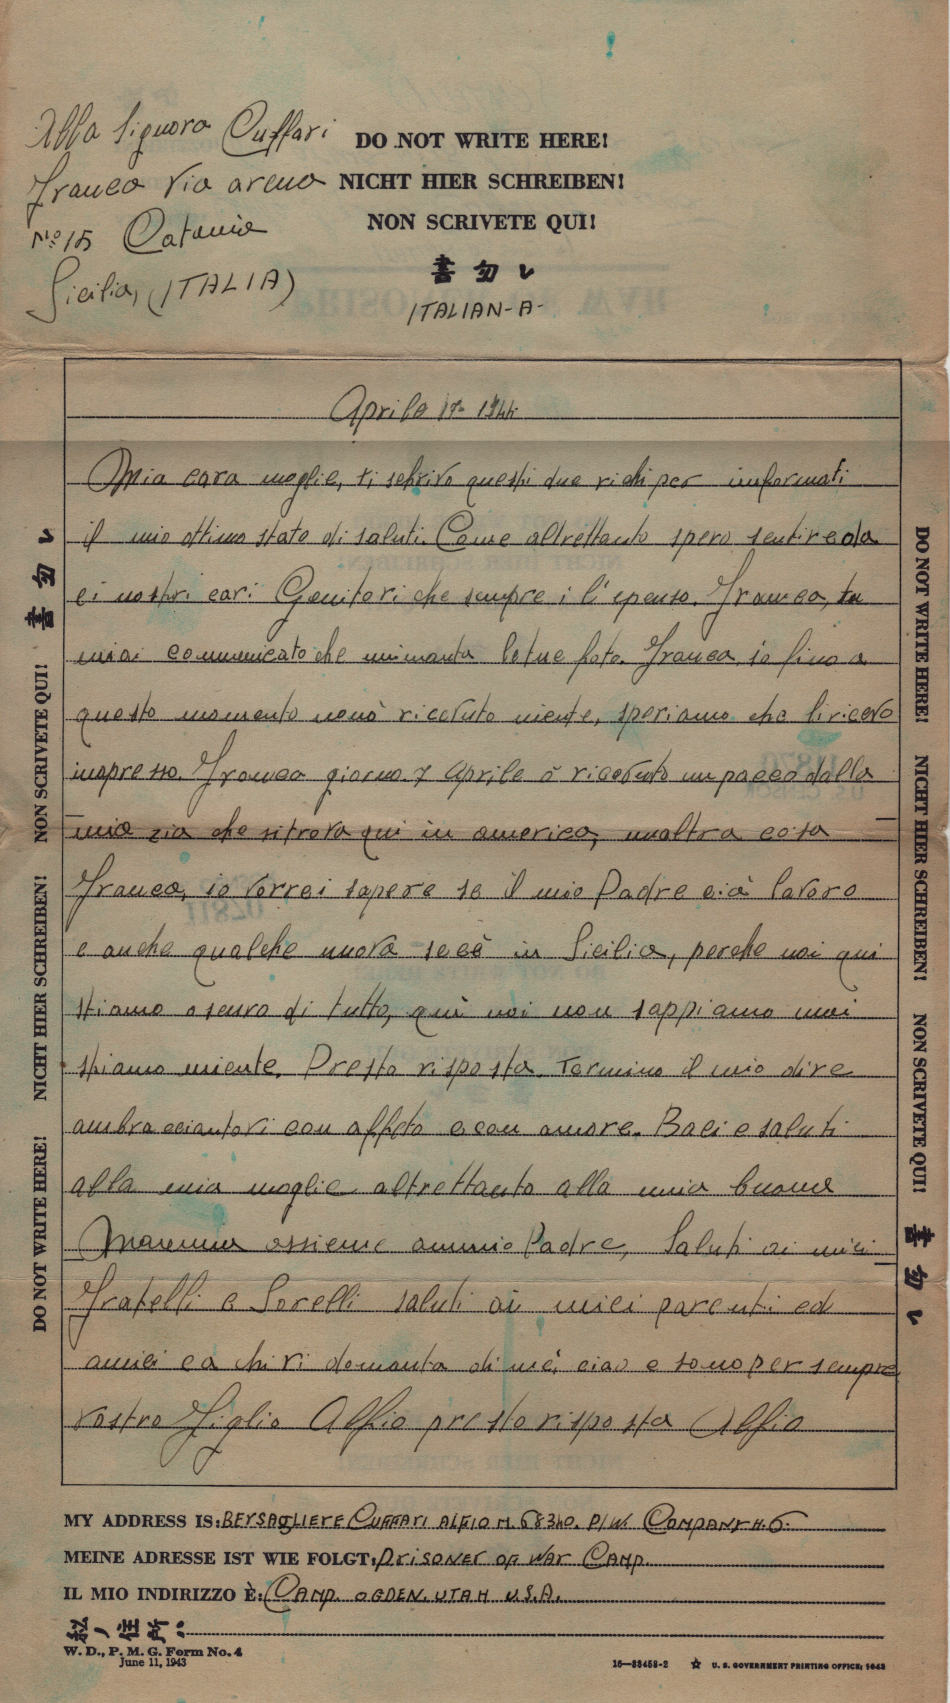 Alla Signora Cuffari
Franca Via arena
Nº 15 Catania
Sicilia, (ITALIA)
DO NOT WRITE HERE!
NICHT HIER SCHREIBEN!
NON SCRIVETE QUI!
書勿レ
ITALIAN-A-
Aprile 17- 1944
Mia cara moglie, ti schrivo questi due richi per informati
il mio ottimo stato di saluti. Come altrettanto spero sentire da
ei nostri cari Genitori che sempre i l'epenso. Franca, tu
miai comunicato che mimanta letue foto. Franca, io fino a
questo momento nonò ricevuto niente, speriamo che liricevo
inopresso. Franca giorno 7 Aprile ò ricevuto un pacco dalla
mia zia che sitrova qui in america, unaltra cosa
Franca, io vorrei sapere se il mio Padre aià lavoro
e anche qualche nuova secè in Sicilia, perche noi qui
stiamo oscuro di tutto, quì noi non sappiamo mai
stiamo niente. Presto risposta. Termino il mio dire
ambracciantovi con affeto econ amore. Baci e saluti
alla mia moglie altrettanto alla mia buona
Mamma assieme ammio Padre, Saluti ai miei
Fratelli e Sorelli saluti ai miei parenti ed
amici ea chi vi domanta di me, ciao e sono per sempre
vostro Figlio Alfio presto risposta Alfio
MY ADDRESS IS: BERSAGLIERE CUFFARI ALFIO M. 68340. P/W. COMPANY H. 6.
MEINE ADRESSE IST WIE FOLGT: PRISONER OF WAR CAMP.
IL MIO INDIRIZZO È: CAMP. OGDEN. UTAH U.S.A.
私ノ住所ハ
W. D., P. M. G. Form No. 4
June 11, 1943
16—33458-2 ☆ U. S. GOVERNMENT PRINTING OFFICE: 1943
DO NOT WRITE HERE! NICHT HIER SCHREIBEN! NON SCRIVETE QUI! 書勿レ
DO NOT WRITE HERE! NICHT HIER SCHREIBEN! NON SCRIVETE QUI! 書勿レ